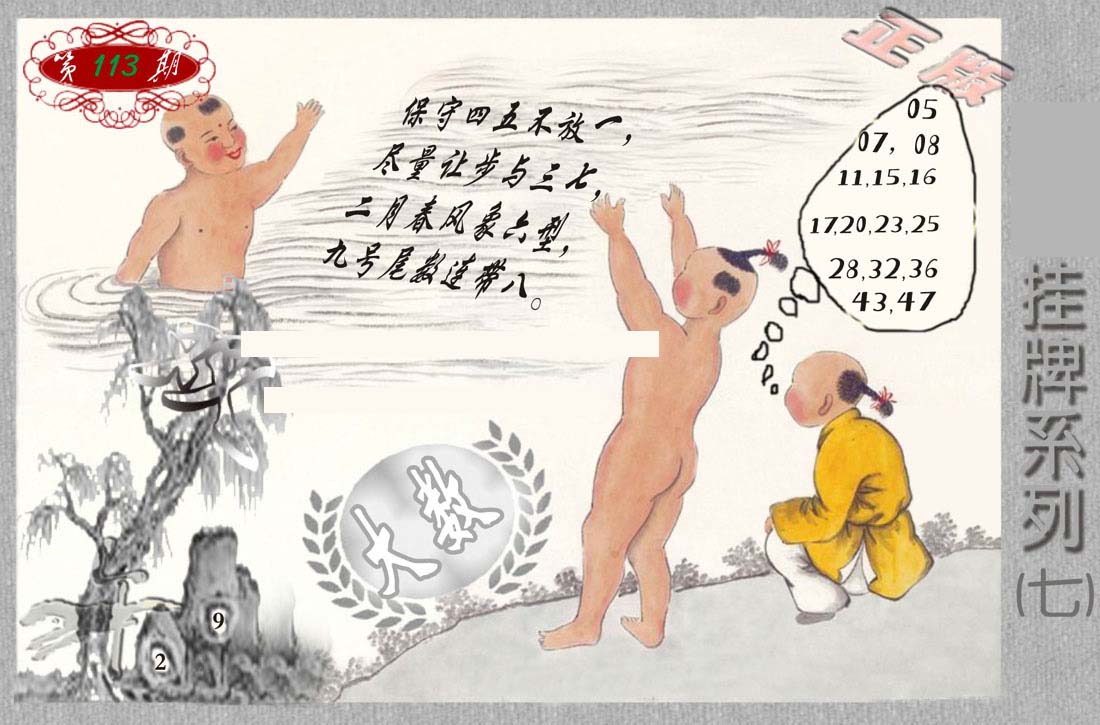 第 113 期
正版
保守四五不放一，
尽量让步与三七，
二月春风象六型，
九号尾数连带八。
05
07, 08
11,15,16
17,20,23,25
28,32,36
43,47
大数
9
2
挂牌系列(七)